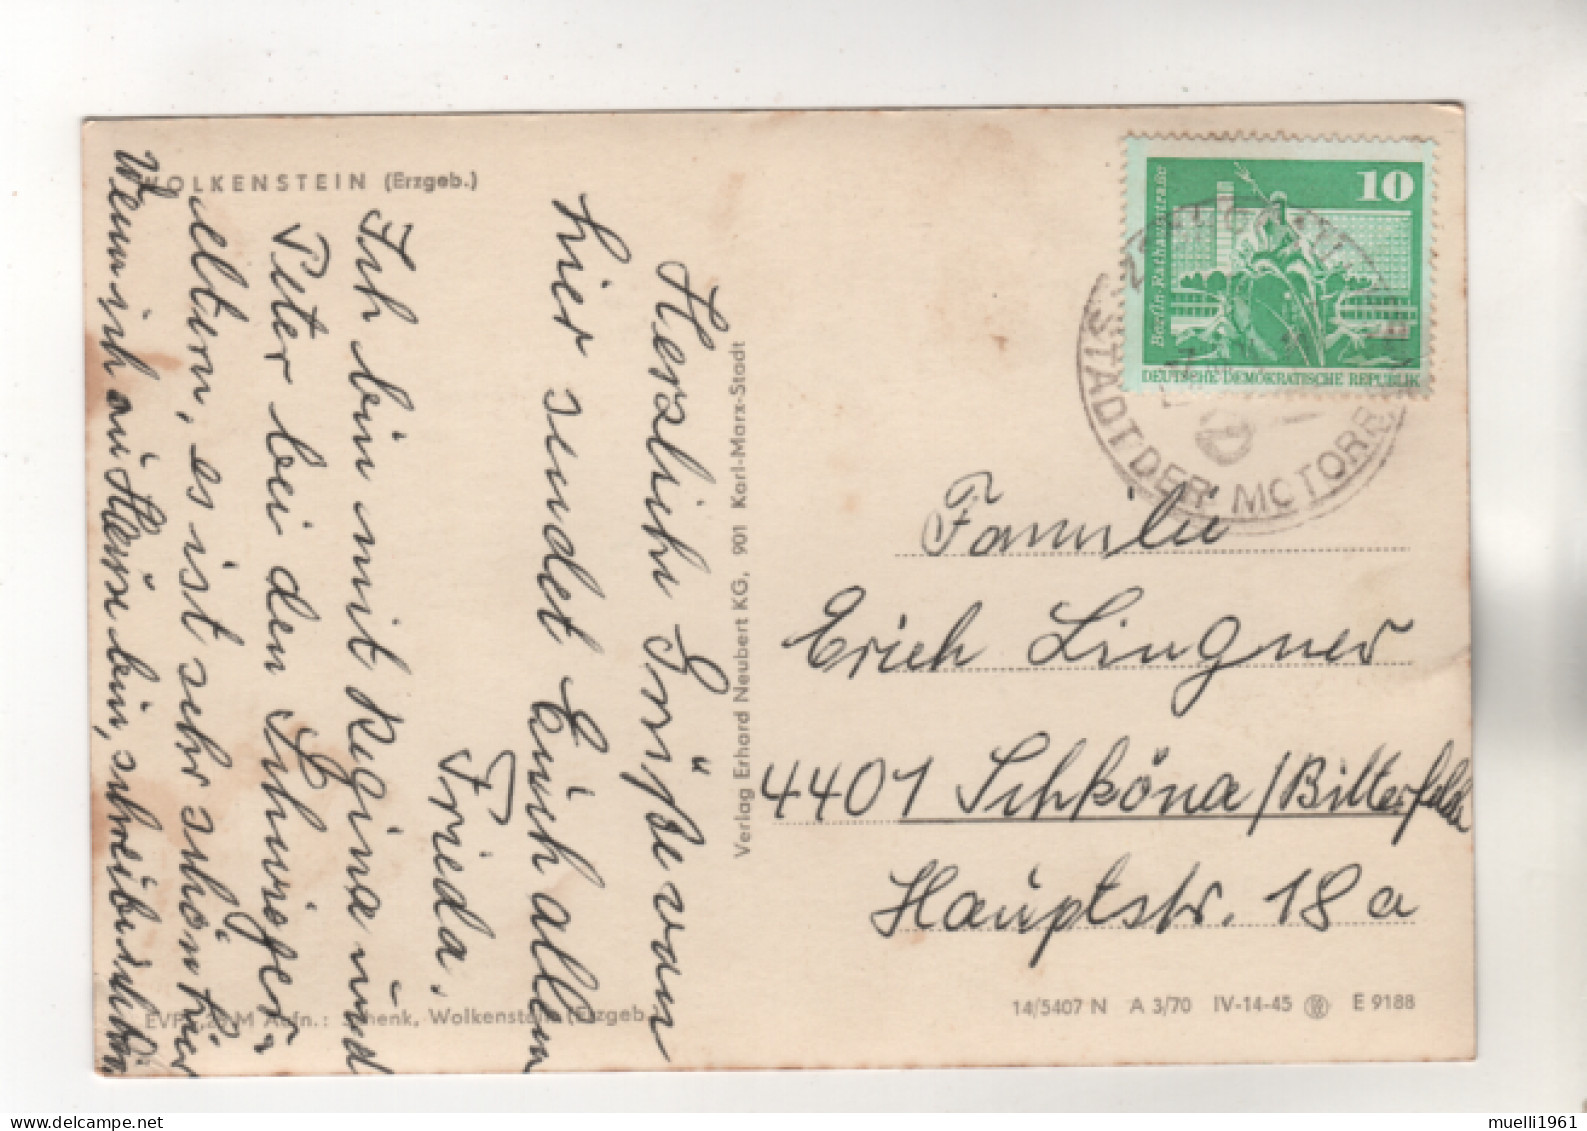 WOLKENSTEIN (Erzgeb.)
Herzliche Grüße von
hier sendet Euch allen
Frieda.
Ich bin mit Regina und
Peter bei den Schwieger-
eltern, es ist sehr schön hier
Wenn ich zu Hause bin, schreibe ich
EVP Aufn.: Schenk, Wolkenstein (Erzgeb.)
Verlag Erhard Neubert KG, 901 Karl-Marx-Stadt
10
Berlin-Rathausstraße
DEUTSCHE DEMOKRATISCHE REPUBLIK
STADT DER MOTORR
Familie
Erich Lingner
4401 Schköna/Bitterfeld
Hauptstr. 18 a
14/5407 N A 3/70 IV-14-45 E 9188
muelli1961